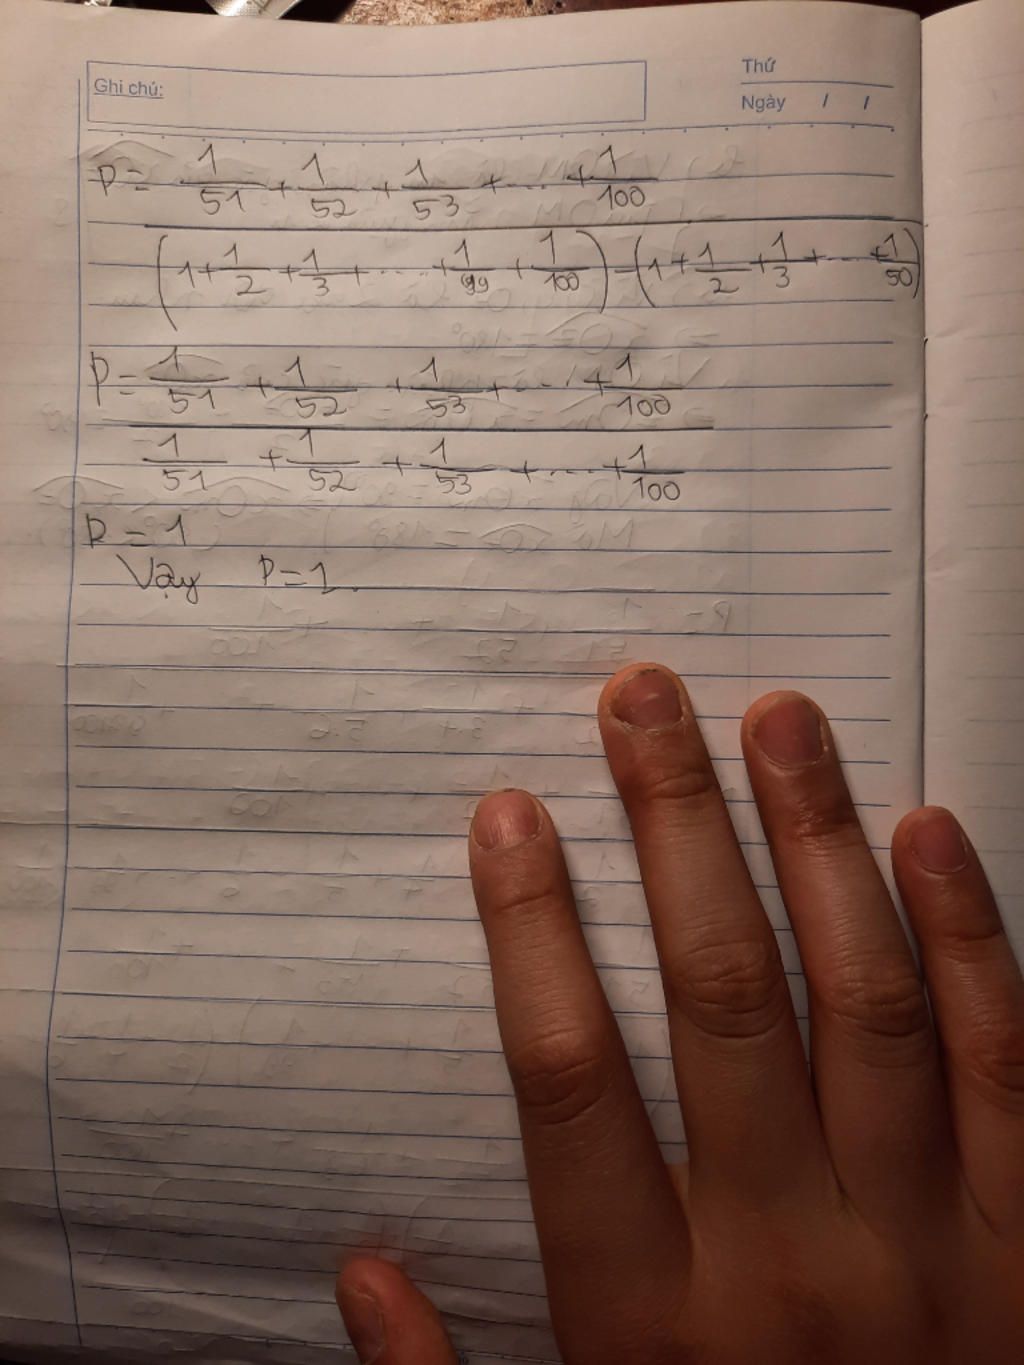 Thứ
Ghi chú:
Ngày / /
P = 1/51 + 1/52 + 1/53 + ... + 1/100
(1 + 1/2 + 1/3 + ... + 1/99 + 1/100) - (1 + 1/2 + 1/3 + ... + 1/50)
P = 1/51 + 1/52 + 1/53 + ... + 1/100
1/51 + 1/52 + 1/53 + ... + 1/100
P = 1
Vậy P = 1.